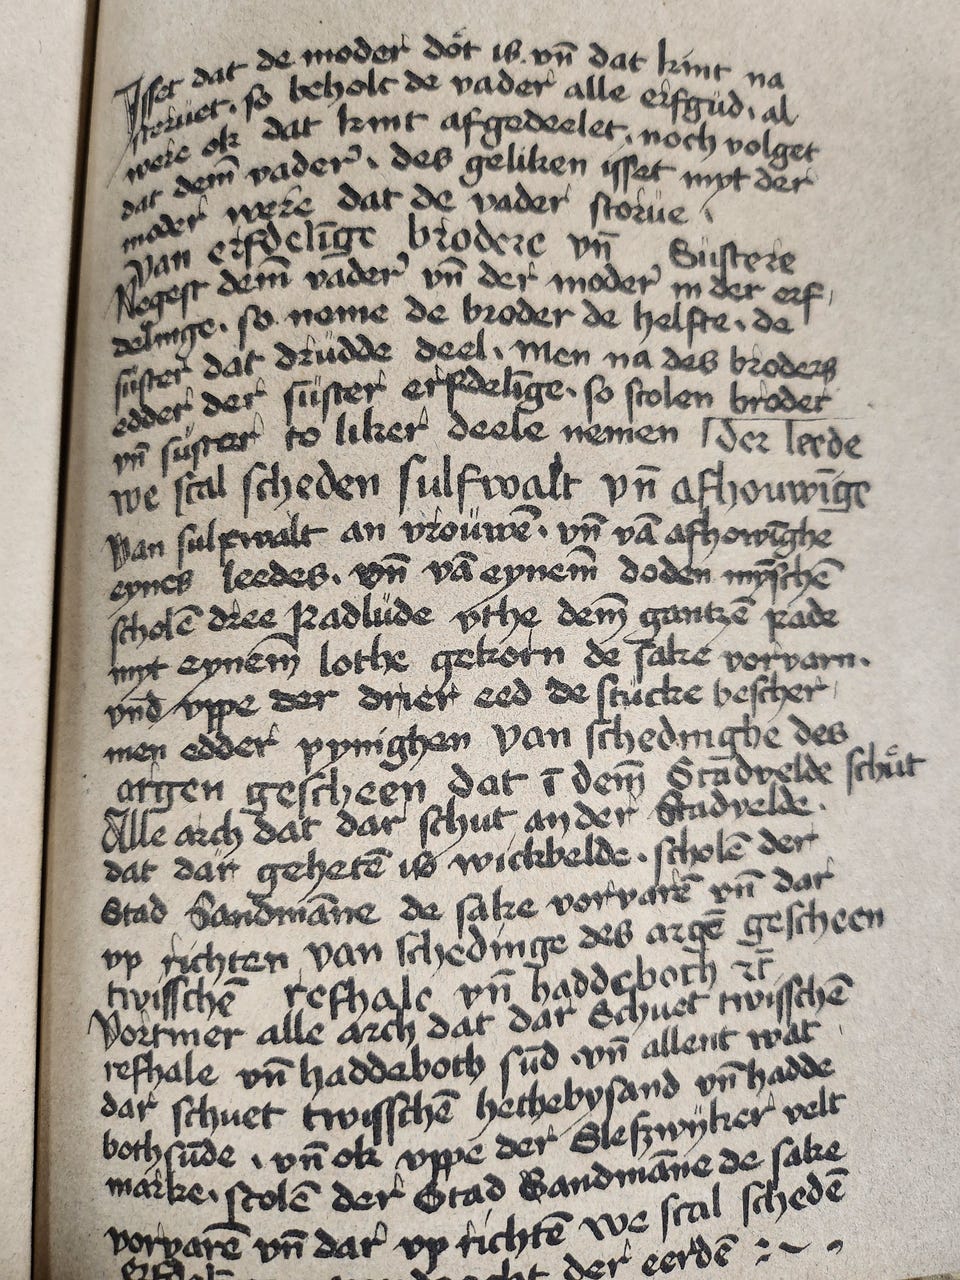 Isset dat de moder dot is. vn̄ dat kint na
storuet. so beholt de vader alle erfgud. al
were ok dat kint afgedeelet. noch volget
dat dem̄ vader. des geliken isset myt der
moder were dat de vader storue.
Van erfdelīge brodere vn̄ Sustere
Negest dem̄ vader vn̄ der moder in der erf
delinge. so neme de broder de helfte. de
suster dat drudde deel. Men na des broders
edder der suster erfdelīge. so scolen broder
vn̄ suster to liker deele nemen der leede
we scal scheden sulfwalt vn̄ afhouwīge
Van sulfwalt an vrouwē. vn̄ vā afhowīghe
eynes leedes. vn̄ vā eynem̄ doden myschē
scholē dree Radlude vthe dem̄ gantzē rade
myt eynem̄ lothe gekorn de sake vorvarn.
vnd vppe der drier eed de stucke bescher
men edder pynighen van schedinghe des
argen gescheen dat ī dem̄ Stadvelde schut
Alle arch dat dar schut an der Stadvelde.
dat dar gehetē is wickbelde. scholē der
Stad Sandmāne de sake vorvarē vn̄ dar
vp richten van schedinge des argē gescheen
twisschē refhale vn̄ haddeboth
Vortmer alle arch dat dar Schuet twisschē
refhale vn̄ haddeboth sūd. vn̄ allent wat
dar schuet twisschē hethebysand vn̄ hadde
both sūde. vn̄ ok vppe der Sleszwyker velt
marke. scolē der Stad Sandmāne de sake
vorvarē vn̄ dar vp richtē we scal schedē
der eerdē